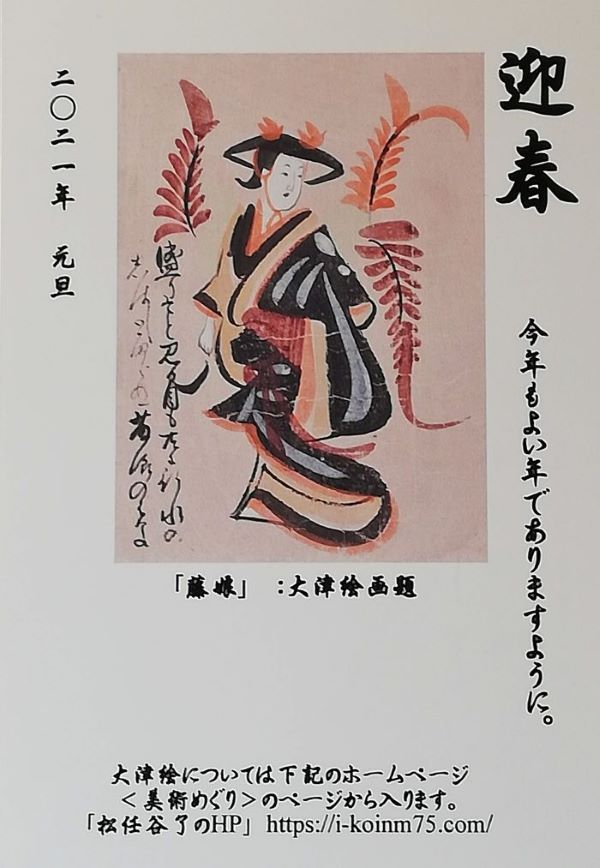 迎春
今年もよい年でありますように。
二〇二一年 元旦
「藤娘」 :大津絵画題
大津絵については下記のホームページ
<美術めぐり>のページから入ります。
「松任谷了のHP」 https://i-koinm75.com/